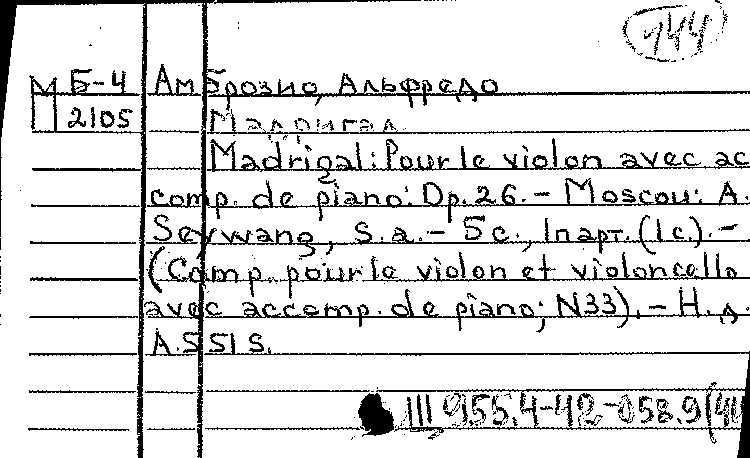 144
М Б-4 Амброзио, Альфредо
2105 Мадригал
Madrigal: Pour le violon avec ac
comp. de piano: Op. 26. – Moscou: A.
Seywang, s.a. – 5 с., 1 парт. (1 с). –
(Comp. pour le violon et violoncello
avec accomp. de piano; N33). – Н. д.
A.SSIS.
III 955.4-42-058.9(44